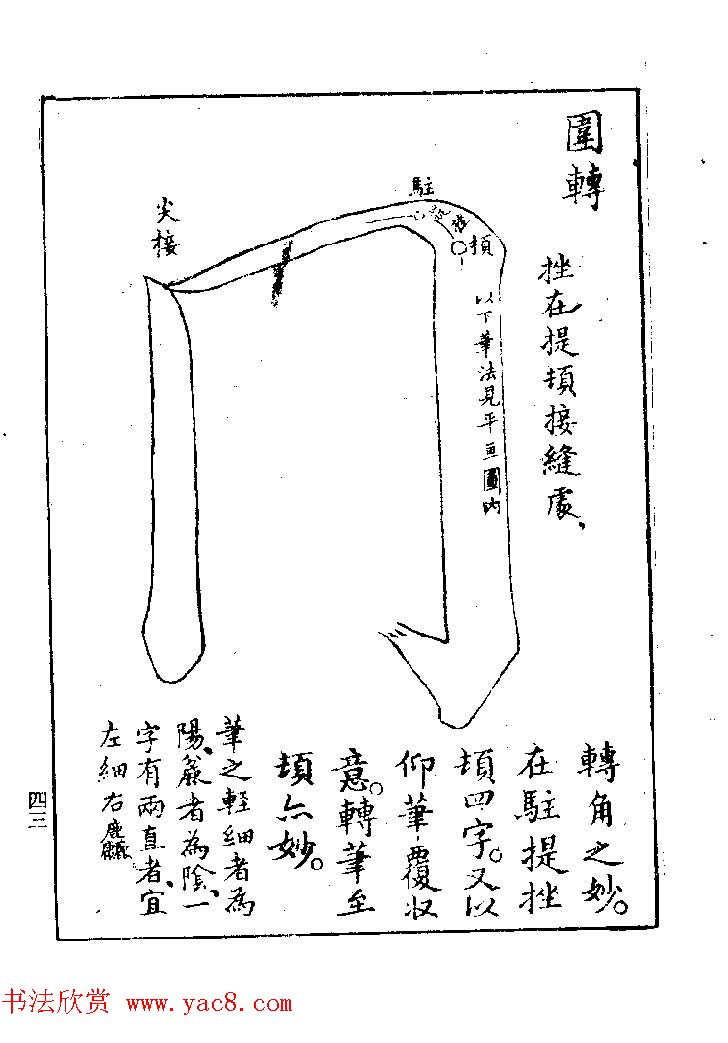 圍轉
挫在提頓接縫處、
駐
提
挫
頓
以下筆法見平画圖內
尖接
轉角之妙。
在駐提挫
頓四字。又以
仰筆覆收
意。轉筆至
頓亦妙。
筆之輕細者為
陽、麄者為陰、一
字有兩直者、宜
左細右麤
四三
书法欣赏 www.yac8.com